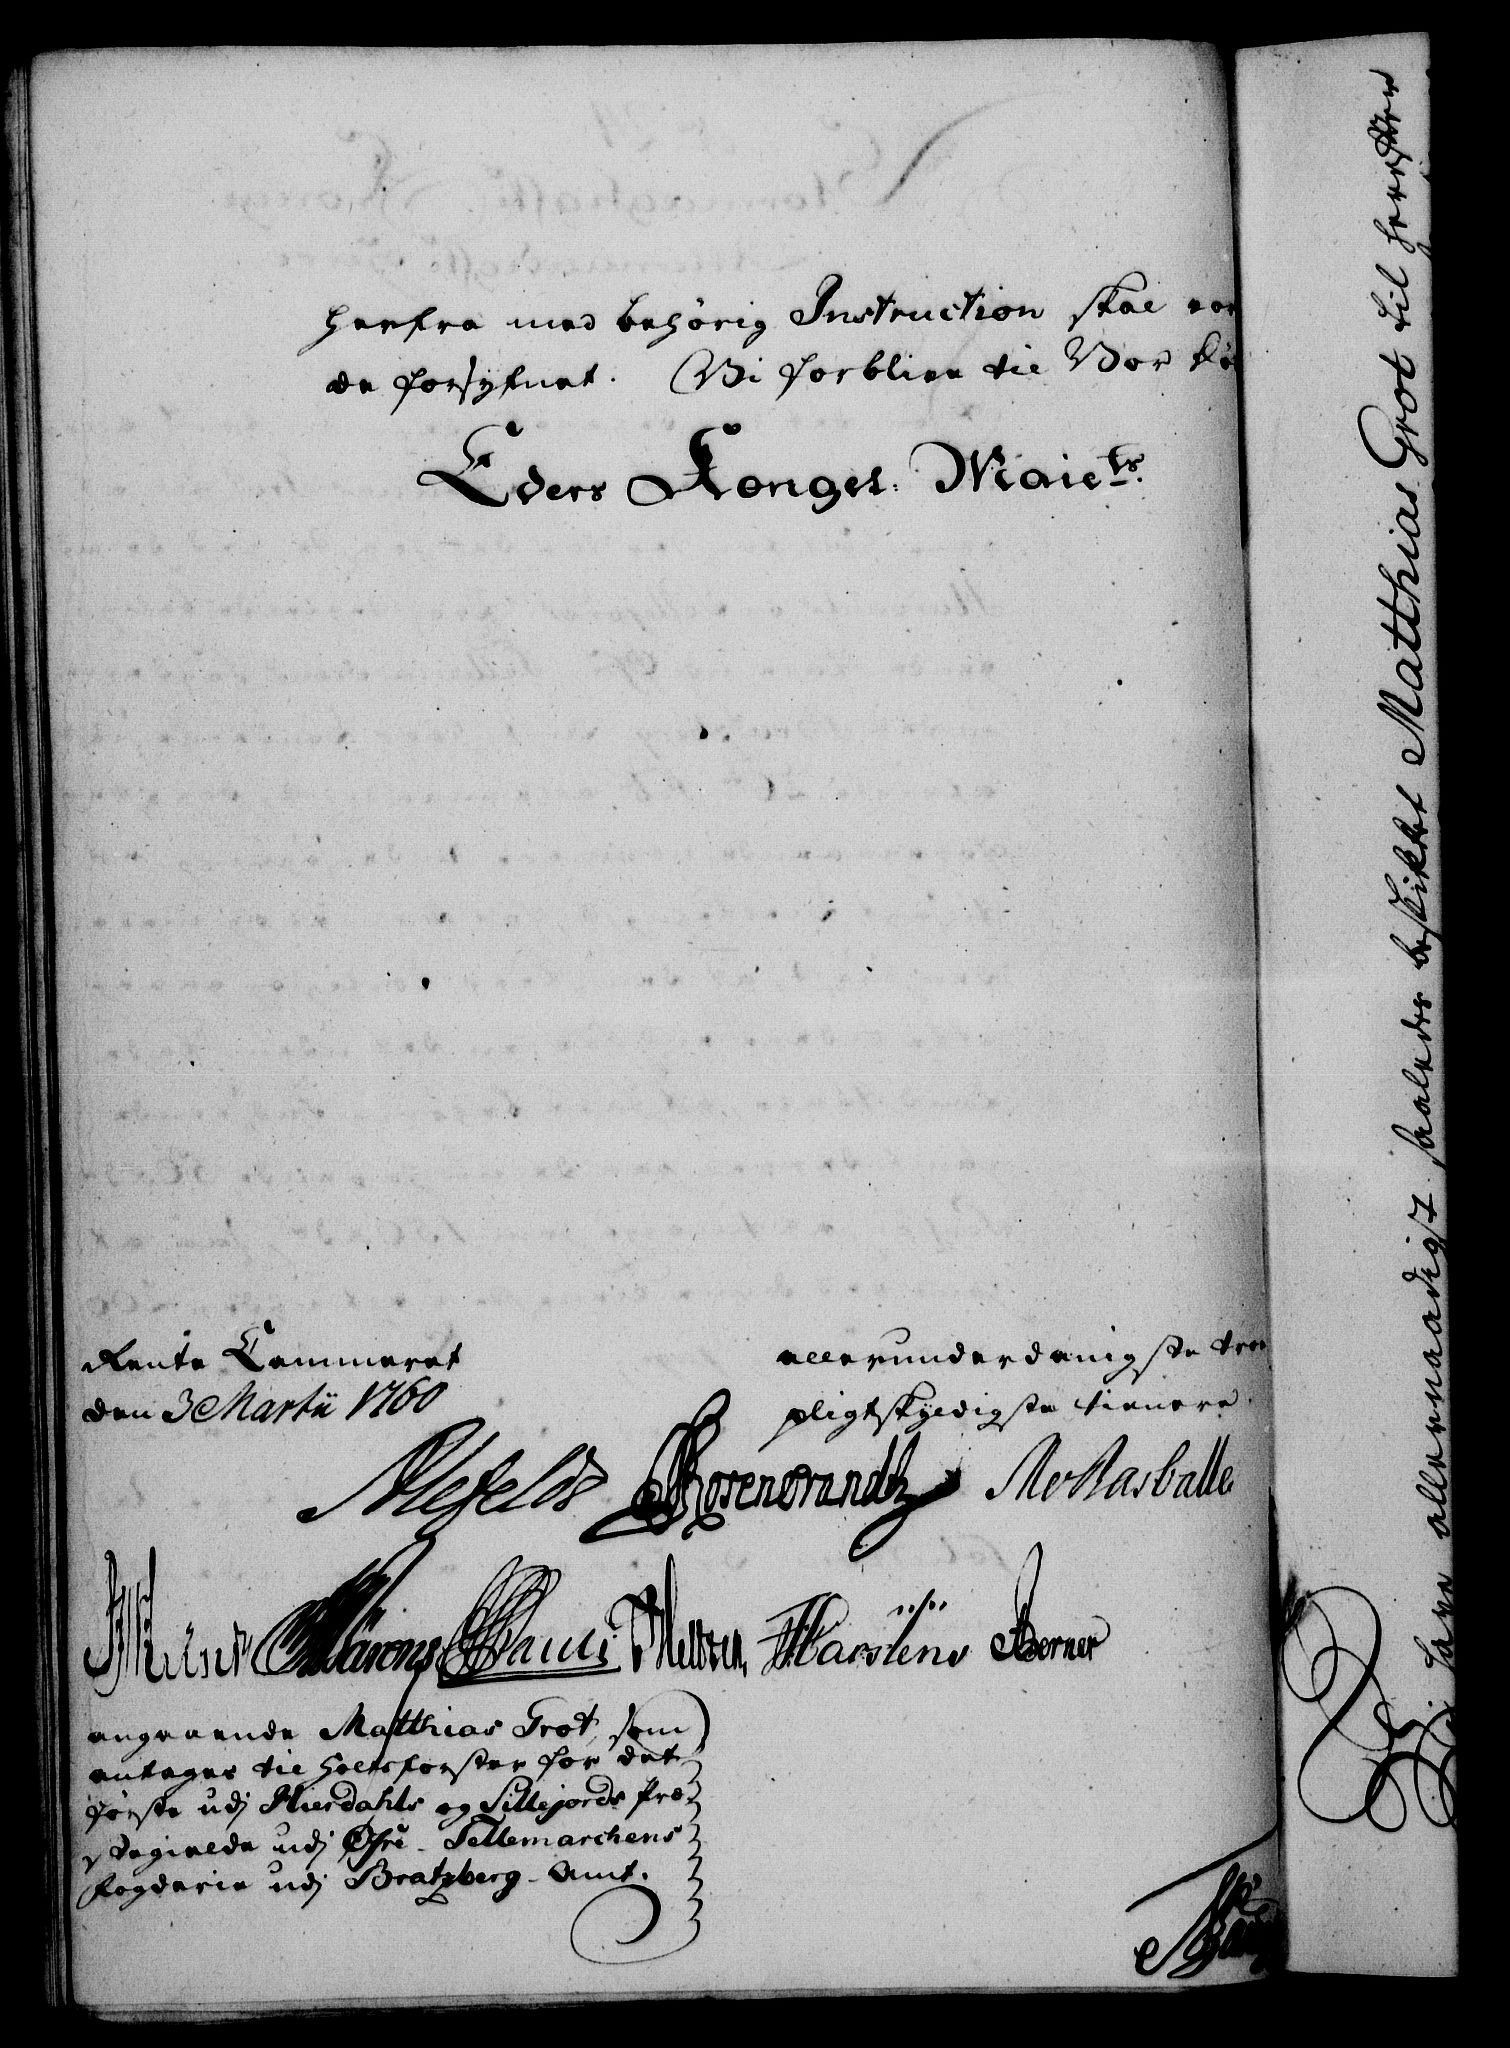 herfra med behørig Instruction skal vor
de forsynet. Vi forblive til Vor Dø
Eders Kongel: Maiets.
Rente Cammeret
den 3 Martii 1760
allerunderdanigste troe
pligtskyldigste tienere.
Alefeldt Rosencrandtz
Bartens Berner
angaaende Matthias Grot, som
antages til Holtzforster for det
første udj Hierdahls og Sillejords Præ-
stegielde udj Øfre-Tellemarchens
Fogderie udj Bratzberg-Amt.
Vi have allernaadigst saaledes beskikket Matthias Grot til forster